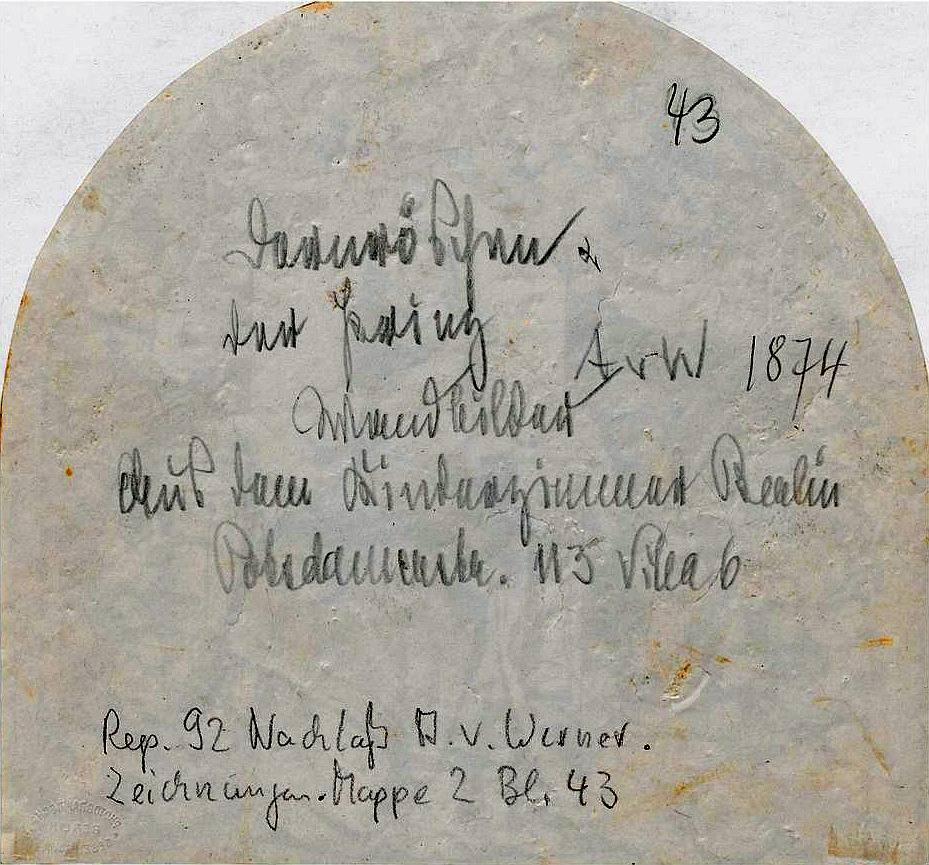 43
Dornröschen.
der Prinz
AvW 1874
Wandbilder
aus dem Kinderzimmer Berlin
Potsdamerstr. 113 Villa 6
Rep. 92 Nachlaß A. v. Werner.
Zeichnungen. Mappe 2 Bl. 43